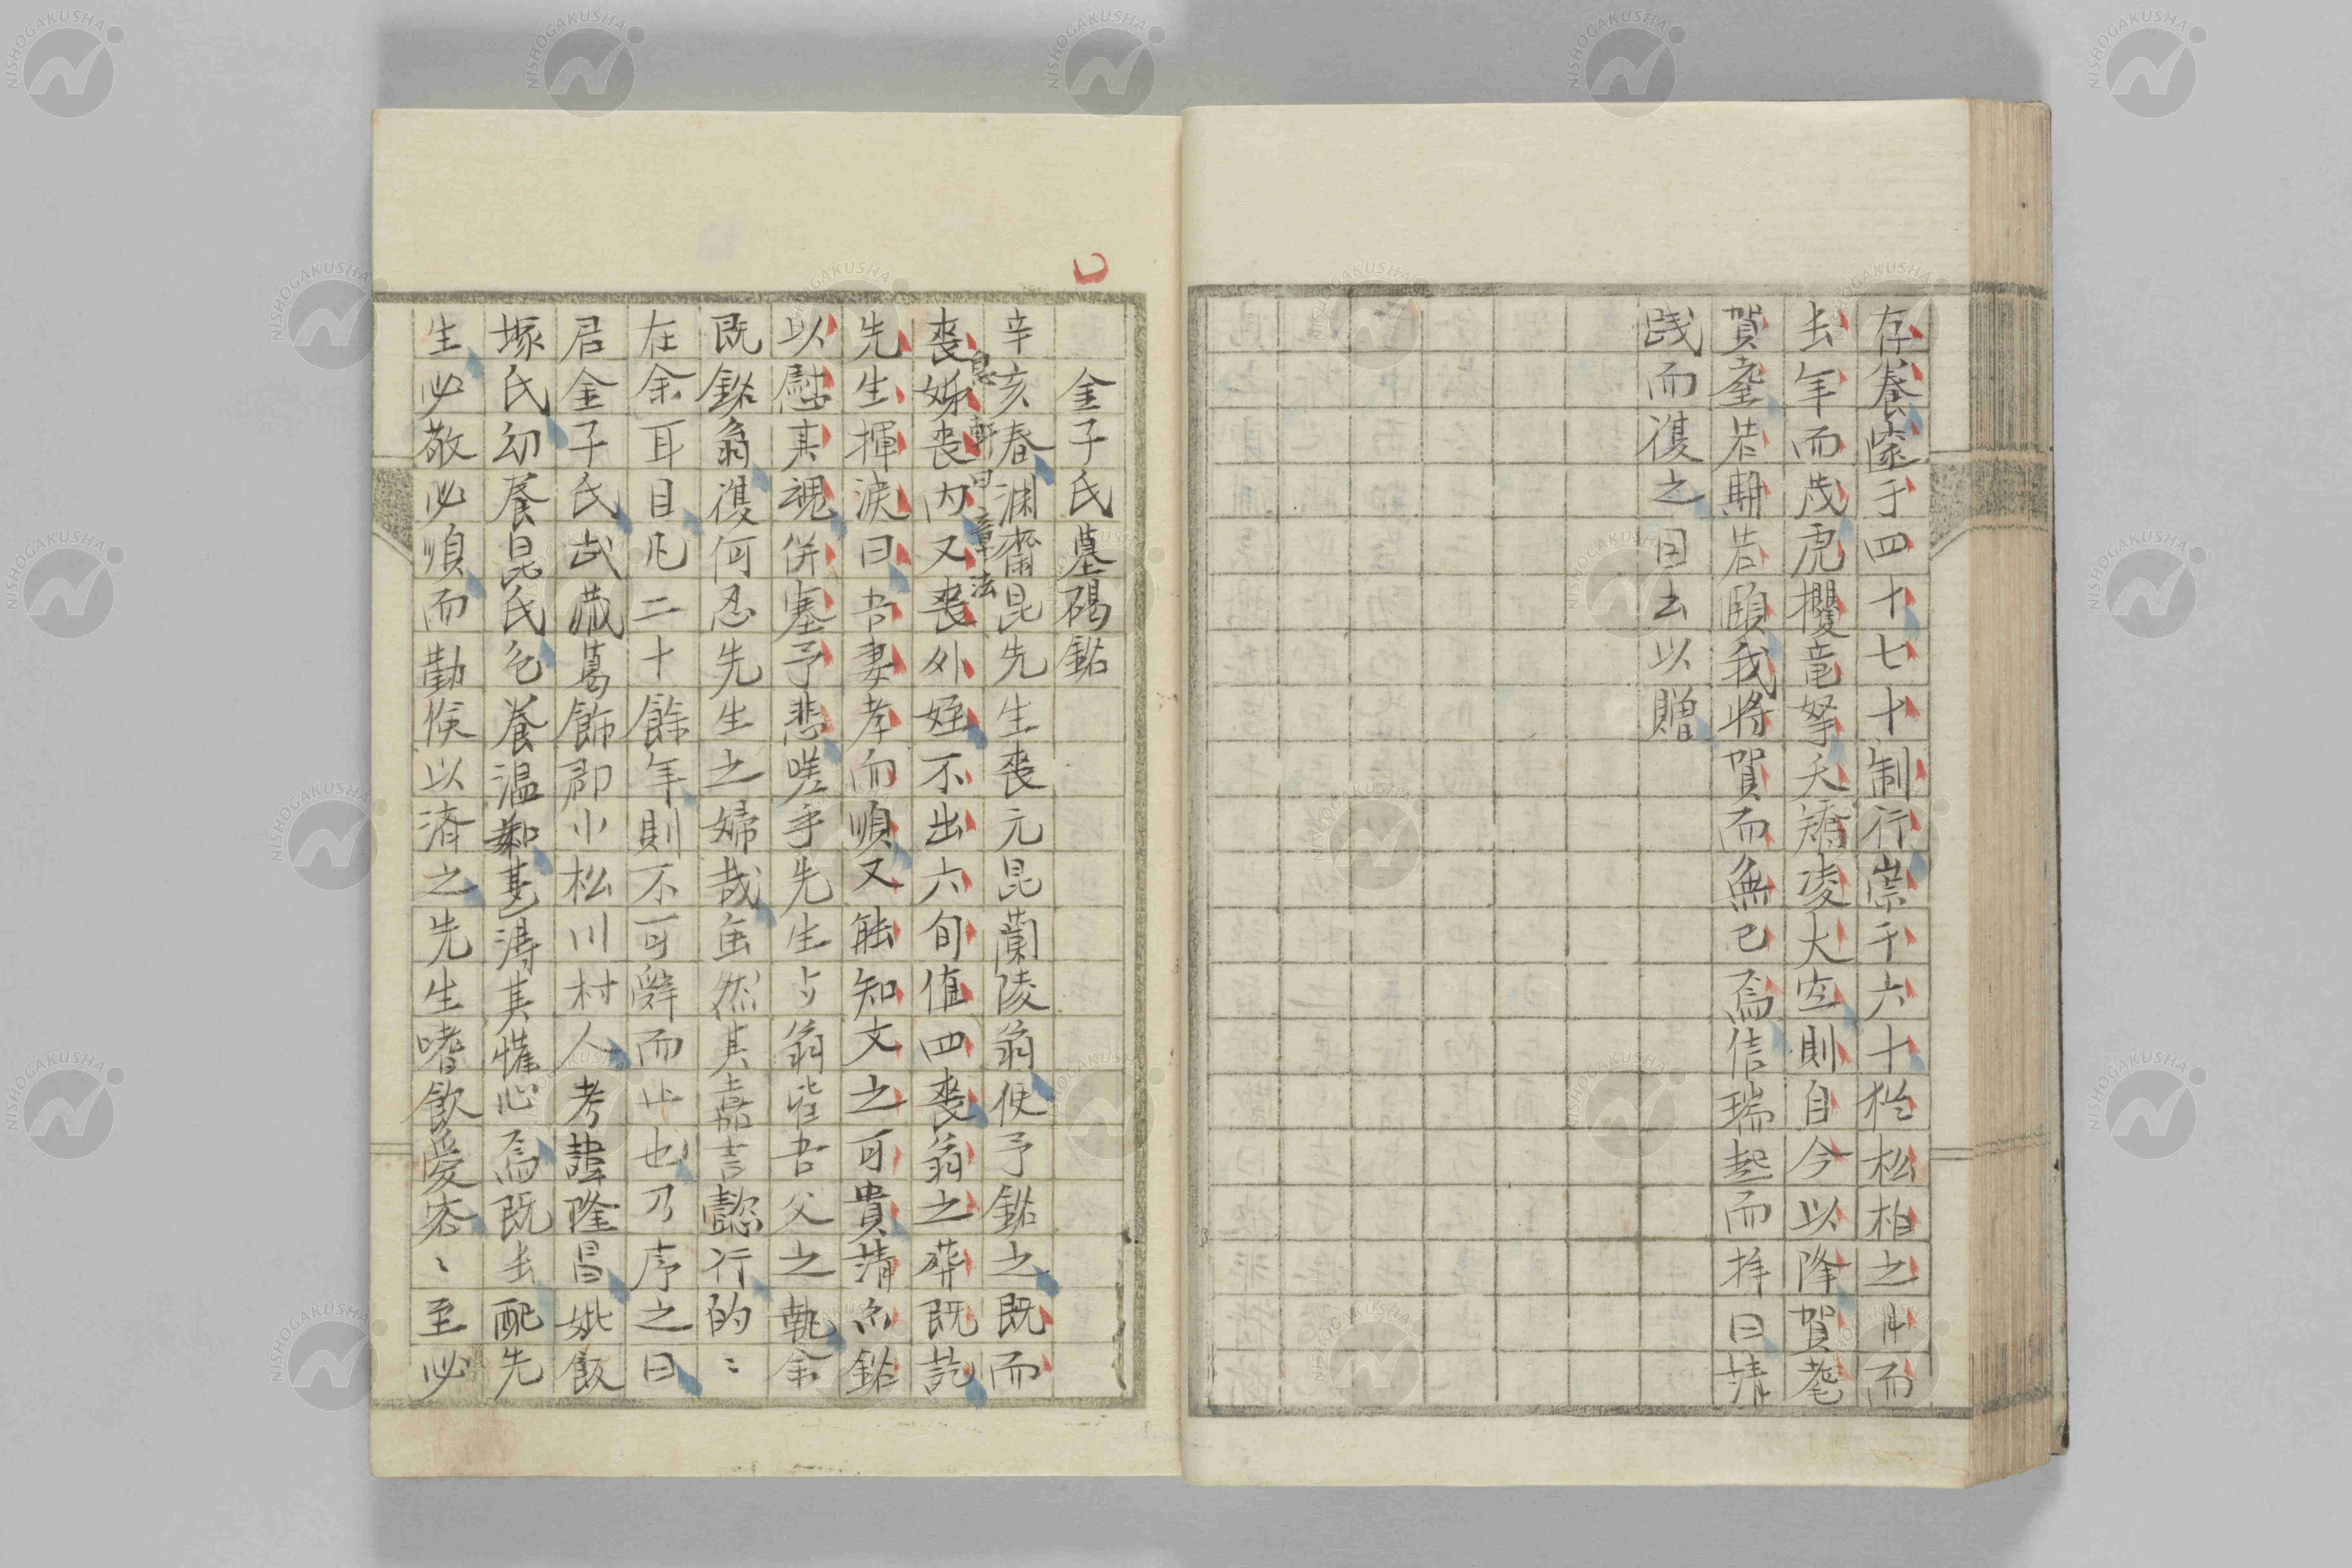 存養邃于四十七十制行崇于六十猶松柏之
而
去年而茂虎攫竜拏夭矯凌大空則自今以降賀耄
賀耋若期若頤我将賀而無已焉信瑞起而拝曰請
識而復之因書以贈
金子氏墓碣銘
辛亥春淵齋昆先生喪元昆蘭陵翁使予銘之既而
息軒曰章法
喪姊喪内又喪外姪不出六旬值四喪翁之葬既訖
先生揮淚曰吾妻孝而順又能知文之可貴請亦銘
以慰其魂併塞予悲嗟乎先生与翁皆吾父之執余
既銘翁復何忍先生之婦哉虽然其嘉言懿行的〻
在余耳目凡二十餘年則不可辤而止也乃序之曰
君金子氏武藏葛飾郡小松川村人考諱隆昌妣飯
塚氏幼養昆氏色養温和甚得其懽心焉既去配先
生必敬必順而勤儉以済之先生嗜飲愛客〻至必